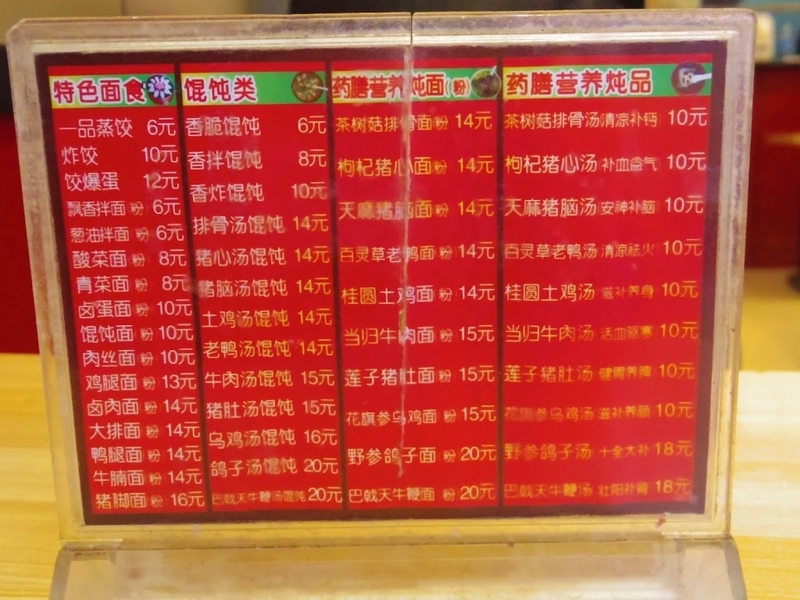 特色面食
一品蒸饺 6元
炸饺 10元
饺爆蛋 12元
飘香拌面 粉 6元
葱油拌面 粉 6元
酸菜面 粉 8元
青菜面 粉 8元
卤蛋面 粉 10元
馄饨面 粉 10元
肉丝面 粉 10元
鸡腿面 粉 13元
卤肉面 粉 14元
大排面 粉 14元
鸭腿面 粉 14元
牛腩面 粉 14元
猪脚面 粉 16元
馄饨类
香脆馄饨 6元
香拌馄饨 8元
香炸馄饨 10元
排骨汤馄饨 14元
猪心汤馄饨 14元
猪脑汤馄饨 14元
土鸡汤馄饨 14元
老鸭汤馄饨 14元
牛肉汤馄饨 15元
猪肚汤馄饨 15元
乌鸡汤馄饨 16元
鸽子汤馄饨 20元
巴戟天牛鞭汤馄饨 20元
药膳营养炖面(粉)
茶树菇排骨面 粉 14元
枸杞猪心面 粉 14元
天麻猪脑面 粉 14元
百灵草老鸭面 粉 14元
桂圆土鸡面 粉 14元
当归牛肉面 粉 15元
莲子猪肚面 粉 15元
花旗参乌鸡面 粉 15元
野参鸽子面 粉 20元
巴戟天牛鞭面 粉 20元
药膳营养炖品
茶树菇排骨汤 清凉补钙 10元
枸杞猪心汤 补血益气 10元
天麻猪脑汤 安神补脑 10元
百灵草老鸭汤 清凉祛火 10元
桂圆土鸡汤 滋补养身 10元
当归牛肉汤 活血驱寒 10元
莲子猪肚汤 健胃养脾 10元
花旗参乌鸡汤 滋补养颜 10元
野参鸽子汤 十全大补 18元
巴戟天牛鞭汤 壮阳补肾 18元